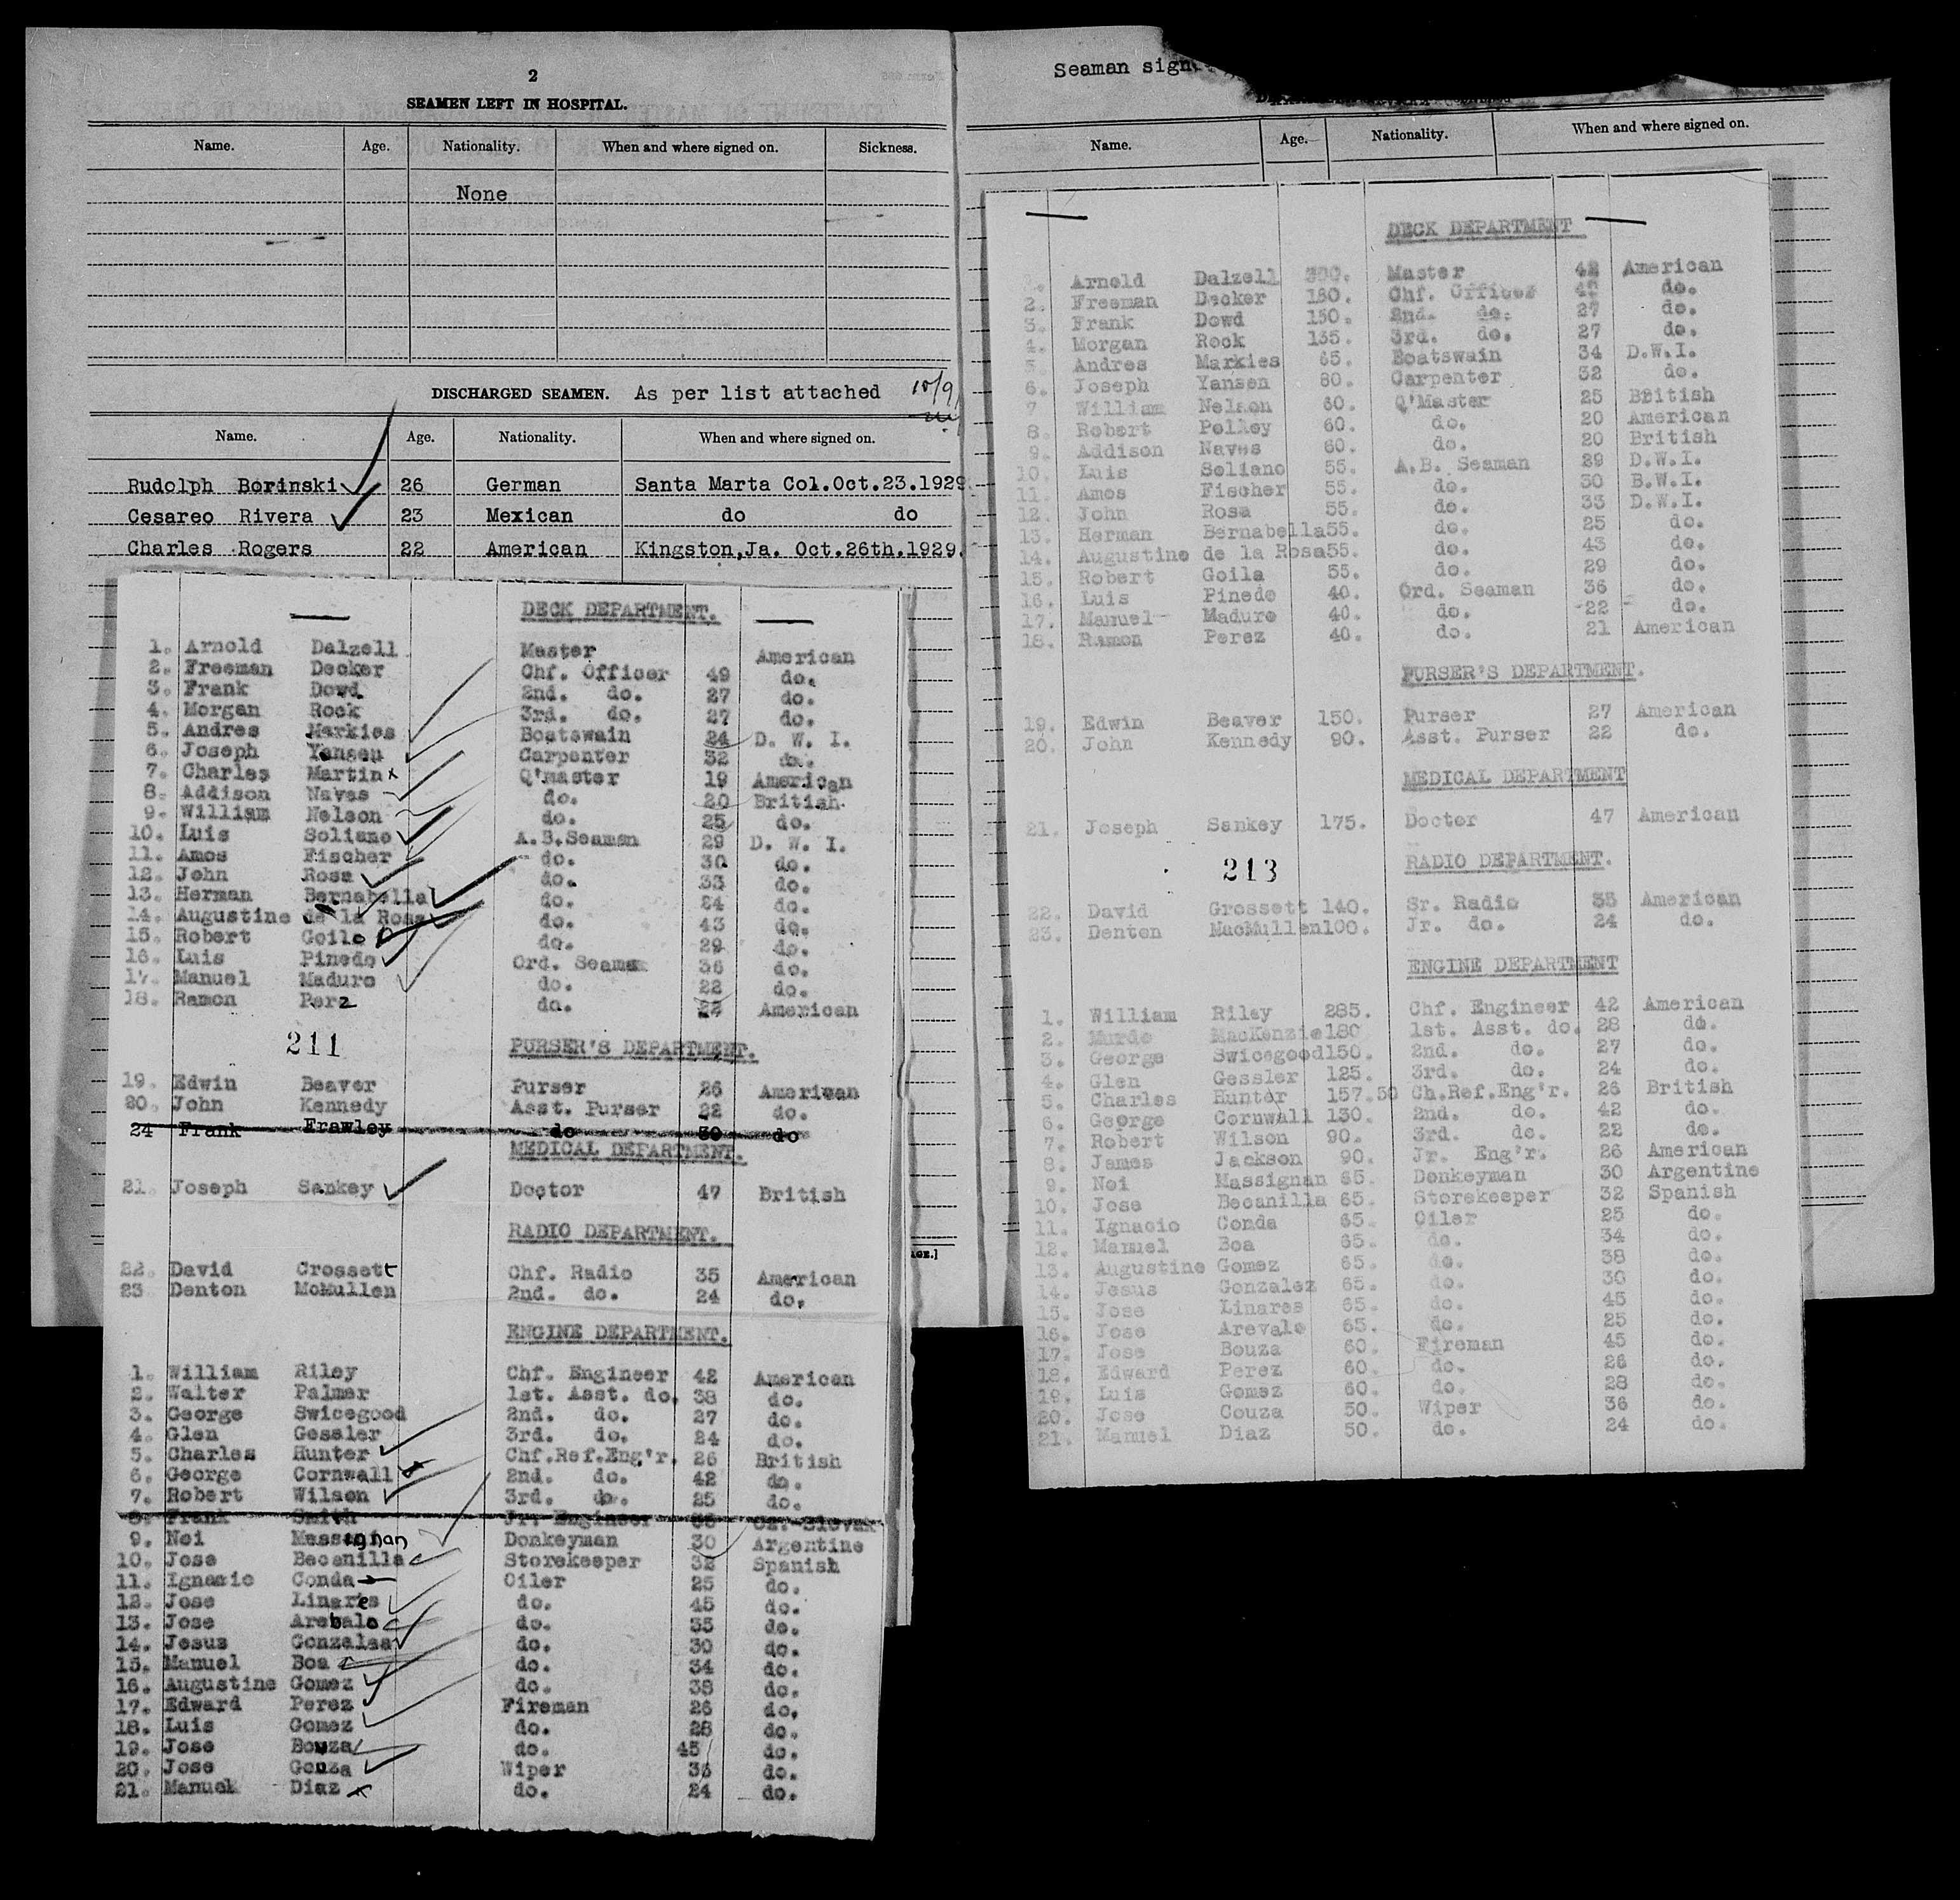 2
SEAMEN LEFT IN HOSPITAL.
Name. Age. Nationality. When and where signed on. Sickness.
None
DISCHARGED SEAMEN. As per list attached 10/9
Name. Age. Nationality. When and where signed on.
Rudolph Borinski 26 German Santa Marta Col.Oct.23.1929
Cesareo Rivera 23 Mexican do do
Charles Rogers 22 American Kingston,Ja. Oct.26th.1929.
DECK DEPARTMENT.
1. Arnold Dalzell Master American
2. Freeman Decker Chf. Officer 49 do.
3. Frank Dowd 2nd. do. 27 do.
4. Morgan Rock 3rd. do. 27 do.
5. Andres Markies Boatswain 24 D. W. I.
6. Joseph Yansen Carpenter 32 do.
7. Charles Martin x Q'master 19 American
8. Addison Naves do. 20 British
9. William Nelson do. 25 do.
10. Luis Soliano A.B.Seaman 29 D. W. I.
11. Amos Fischer do. 30 do.
12. John Rosa do. 33 do.
13. Herman Bernabella do. 24 do.
14. Augustine de la Rosa do. 43 do.
15. Robert Goilo do. 29 do.
16. Luis Pinedo Ord. Seaman 36 do.
17. Manuel Maduro do. 22 do.
18. Ramon Perz do. 22 American
211
PURSER'S DEPARTMENT.
19. Edwin Beaver Purser 26 American
20. John Kennedy Asst. Purser 22 do.
24 Frank Frawley do 30 do
MEDICAL DEPARTMENT.
21. Joseph Sankey Doctor 47 British
RADIO DEPARTMENT.
22. David Crossett Chf. Radio 35 American
23. Denton McMullen 2nd. do. 24 do.
ENGINE DEPARTMENT.
1. William Riley Chf. Engineer 42 American
2. Walter Palmer 1st. Asst. do. 38 do.
3. George Swicegood 2nd. do. 27 do.
4. Glen Gessler 3rd. do. 24 do.
5. Charles Hunter Chf.Ref.Eng'r. 26 British
6. George Cornwall 2nd. do. 42 do.
7. Robert Wilson 3rd. do. 25 do.
8. Frank Smith Jr. Engineer Cz.-Slovak
9. Noi Massignan Donkeyman 30 Argentine
10. Jose Becanilla Storekeeper 32 Spanish
11. Ignacio Conda Oiler 25 do.
12. Jose Linares do. 45 do.
13. Jose Arebalo do. 35 do.
14. Jesus Gonzales do. 30 do.
15. Manuel Boa do. 34 do.
16. Augustine Gomez do. 38 do.
17. Edward Perez Fireman 26 do.
18. Luis Gomez do. 28 do.
19. Jose Bouza do. 45 do.
20. Jose Gouza Wiper 36 do.
21. Manuek Diaz x do. 24 do.
AGE.]
Seaman sign
Name. Age. Nationality. When and where signed on.
DECK DEPARTMENT
Arnold Dalzell Master 42 American
2. Freeman Decker 180. Chf. Officer do.
3. Frank Dowd 150. 2nd. do. 27 do.
4. Morgan Rock 135. 3rd. do. 27 do.
5. Andres Markies 65. Boatswain 34 D.W.I.
6. Joseph Yansen 80. Carpenter 32 do.
7 William Nelson 60. Q'Master 25 British
8. Robert Polhey 60. do. 20 American
9. Addison Naves 60. do. 20 British
10. Luis Soliano 55. A.B. Seaman 29 D.W.I.
11. Amos Fischer 55. do. 30 B.W.I.
12. John Rosa 55. do. 33 D.W.I.
13. Herman Bernabella55. do. 25 do.
14. Augustine de la Rosa55. do. 43 do.
15. Robert Goila 55. do. 29 do.
16. Luis Pinedo 40. Ord. Seaman 36 do.
17. Manuel Maduro 40. do. 22 do.
18. Ramon Perez 40. do. 21 American
PURSER'S DEPARTMENT.
19. Edwin Beaver 150. Purser 27 American
20. John Kennedy 90. Asst. Purser 22 do.
MEDICAL DEPARTMENT
21. Joseph Sankey 175. Doctor 47 American
213
RADIO DEPARTMENT.
22. David Grossett 140. Sr. Radio 35 American
23. Denton MacMullen100. Jr. do. 24 do.
ENGINE DEPARTMENT
1. William Riley 285. Chf. Engineer 42 American
2. Murdo MacKenzie180 1st. Asst. do. 28 do.
3. George Swicegood150. 2nd. do. 27 do.
4. Glen Gessler 125. 3rd. do. 24 do.
5. Charles Hunter 157.50 Ch.Ref.Eng'r. 26 British
6. George Cornwall 130. 2nd. do. 42 do.
7. Robert Wilson 90. 3rd. do. 22 do.
8. James Jackson 90. Jr. Eng'r. 26 American
9. Noi Massignan 65. Donkeyman 30 Argentine
10. Jose Becanilla 65. Storekeeper 32 Spanish
11. Ignacio Conda 65. Oiler 25 do.
12. Manuel Boa 65. do. 34 do.
13. Augustine Gomez 65. do. 38 do.
14. Jesus Gonzalez 65. do. 30 do.
15. Jose Linares 65. do. 45 do.
16. Jose Arevalo 65. do. 25 do.
17. Jose Bouza 60. Fireman 45 do.
18. Edward Perez 60. do. 26 do.
19. Luis Gomez 60. do. 28 do.
20. Jose Couza 50. Wiper 36 do.
21. Manuel Diaz 50. do. 24 do.